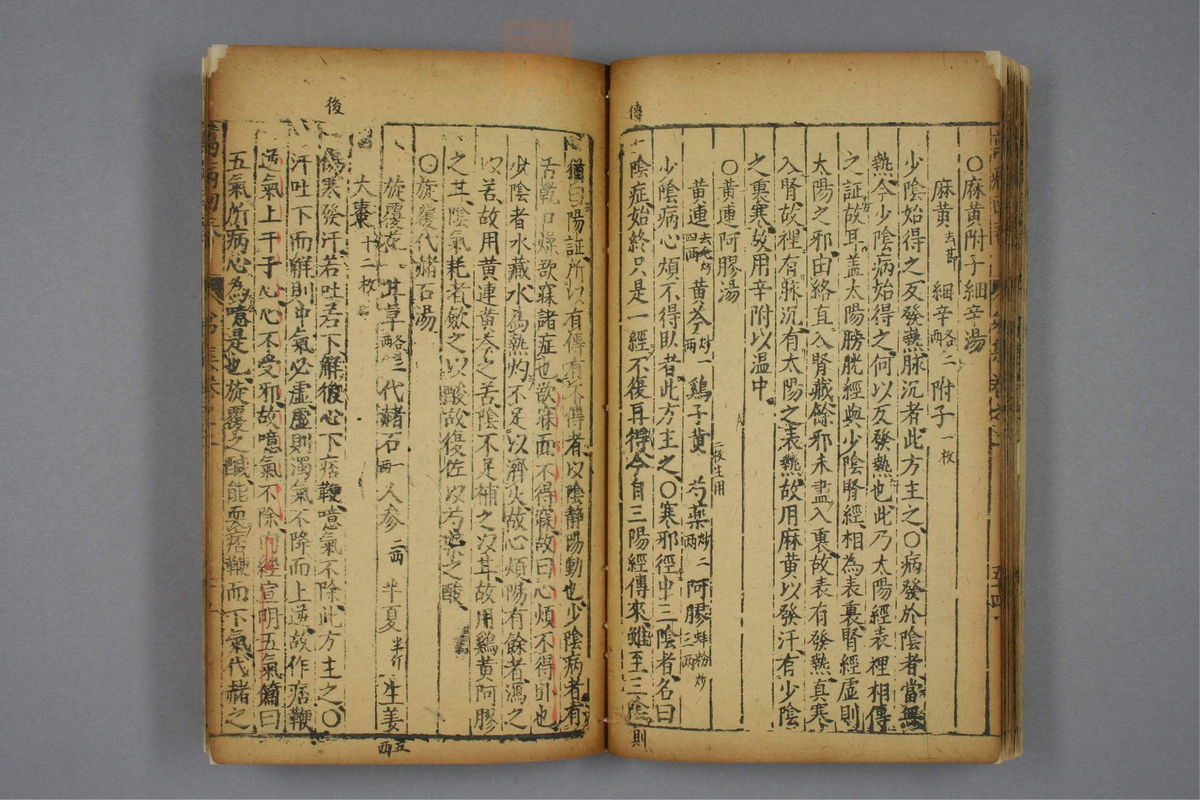 ○麻黃附子細辛湯
麻黃去節 細辛各二兩 附子一枚
少陰始得之反發熱脉沉者此方主之○病發於陰者當無
熱今少陰病始得之何以反發熱也此乃太陽經表裡相傳
之証故耳蓋太陽膀胱經與少陰腎經相為表裏腎經虛則
太陽之邪由絡直入腎藏餘邪未盡入裏故表有發熱真寒
入腎故裡有脉沉有太陽之表熱故用麻黃以發汗有少陰
之裏寒故用辛附以温中
○黃連阿膠湯
黃連去毛炒四兩 黃芩炒一兩 鷄子黃二枚生用 芍藥炒二兩 阿膠蚌粉炒三兩
少陰病心煩不得臥者此方主之○寒邪徑中三陰者名曰
陰症始終只是一經不復再傳今自三陽經傳來雖至三陰
傳
則
猶曰陽証所以有傳有不傳者以陰静陽動也少陰病者有
舌乾口燥欲寐諸症也欲寐而不得寐故曰心煩不得卧也
少陰者水藏水為熱灼不足以濟火故心煩陽有餘者瀉之
以苦故用黃連黃芩之苦陰不足補之以甘故用鷄黃阿膠
之甘陰氣耗者斂之以酸故復佐以芍藥之酸
○旋覆代赭石湯
旋覆花 甘草各三兩 代赭石一兩 人參二兩 半夏半斤 生姜五兩
大棗十二枚
傷寒發汗若吐若下解後心下痞鞕噫氣不除此方主之○
後
汗吐下而解則中氣必虛虛則濁氣不降而上逆故作痞鞕
逆氣上干于心心不受邪故噫氣不除內經宣明五氣篇曰
五氣所病心為噫是也旋覆之鹹能耎痞鞕而下氣代赭之